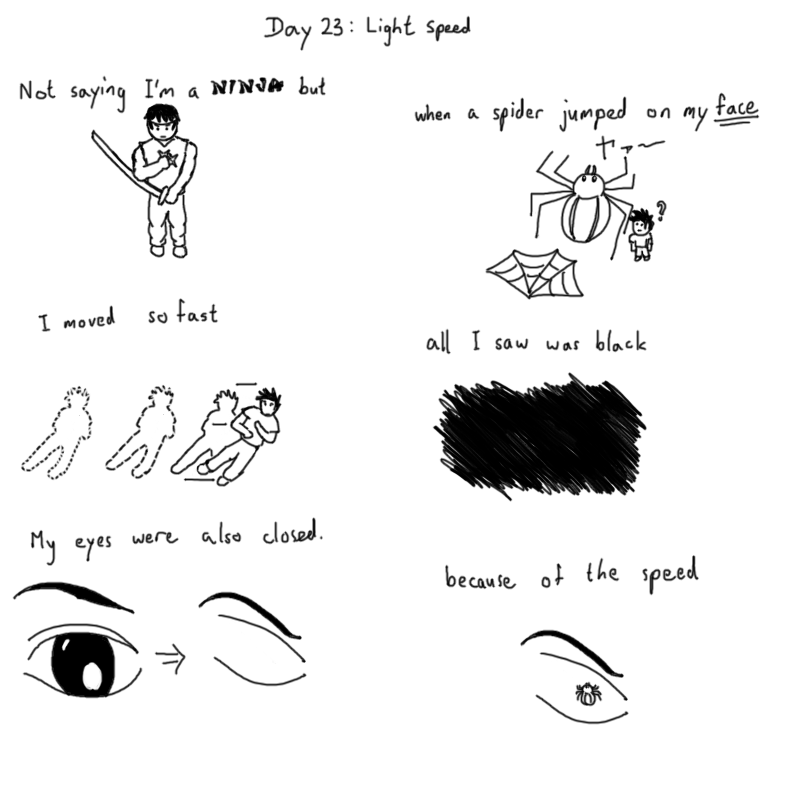 Day 23: Light speed
Not saying I'm a NINJA but
when a spider jumped on my face
?
I moved so fast
all I saw was black
My eyes were also closed.
because of the speed